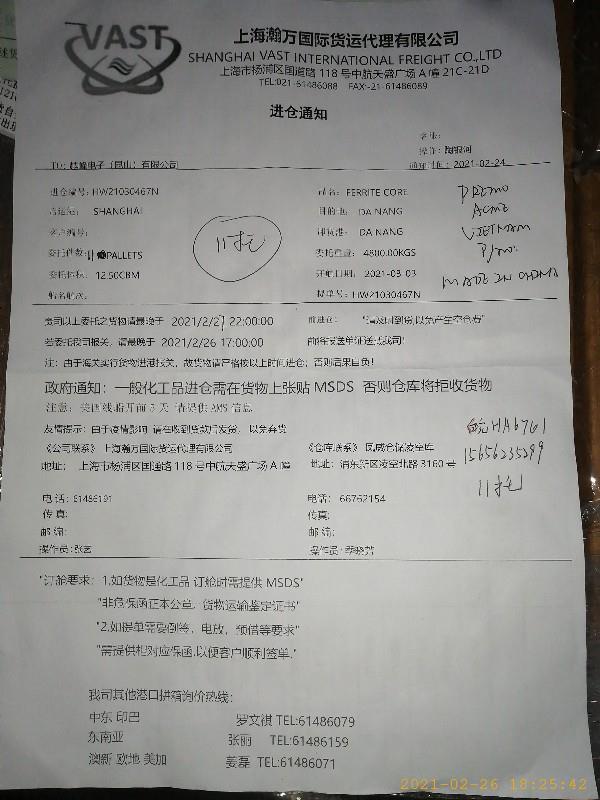 VAST
上海瀚万国际货运代理有限公司
SHANGHAI VAST INTERNATIONAL FREIGHT CO.,LTD
上海市杨浦区国通路 118 号中航天盛广场 A 幢 21C-21D
TEL:021-61486088 FAX:-21-61486089
进仓通知
操作: 陶银河
TO: 越峰电子（昆山）有限公司
通知时间: 2021-02-24
进仓编号: HW21030467N
品名: FERRITE CORE
启运港: SHANGHAI
目的地: DA NANG
ACME
客户编号:
卸货港: DA NANG
VIETNAM
委托件数: 11 PALLETS
11托
委托重量: 4800.00KGS
P/NO:
委托体积: 12.50CBM
开航日期: 2021-03-03
MADE IN CHINA
船名航次:
提单号: HW21030467N
贵司以上委托之货物请最晚于 2021/2/27 22:00:00
前进仓: "请及时到货,以免产生空仓费"
若委托我司报关, 请最晚于 2021/2/26 17:00:00
前将报关单证送达我司!
注: 由于海关实行货物进港报关, 故货物请严格按以上时间进仓; 否则后果自负!
政府通知: 一般化工品进仓需在货物上张贴 MSDS 否则仓库将拒收货物
注意: 美西线船开前 5 天 请提供 AMS 信息
友情提示: 由于疫情影响 请在收到货款后发货, 以免弃货
皖HA6761
《公司联系》上海瀚万国际货运代理有限公司
《仓库联系》凤威仓储凌空库
15656235299
地址: 上海市杨浦区国通路 118 号中航天盛广场 A 幢
地址: 浦东新区凌空北路 3160 号
11托
电话: 61486191
电话: 66762154
传真:
传真:
邮编:
邮编:
操作员: 张玄
操作员: 季晓芳
"订舱要求: 1.如货物是化工品 订舱时需提供 MSDS"
"非危保函正本公章, 货物运输鉴定证书"
"2.如提单需要倒签, 电放, 预借等要求"
"需提供相对应保函,以便客户顺利签单."
我司其他港口拼箱询价热线:
中东 印巴 罗文祺 TEL:61486079
东南亚 张丽 TEL:61486159
澳新 欧地 美加 姜磊 TEL:61486071
2021-02-26 18:25:42